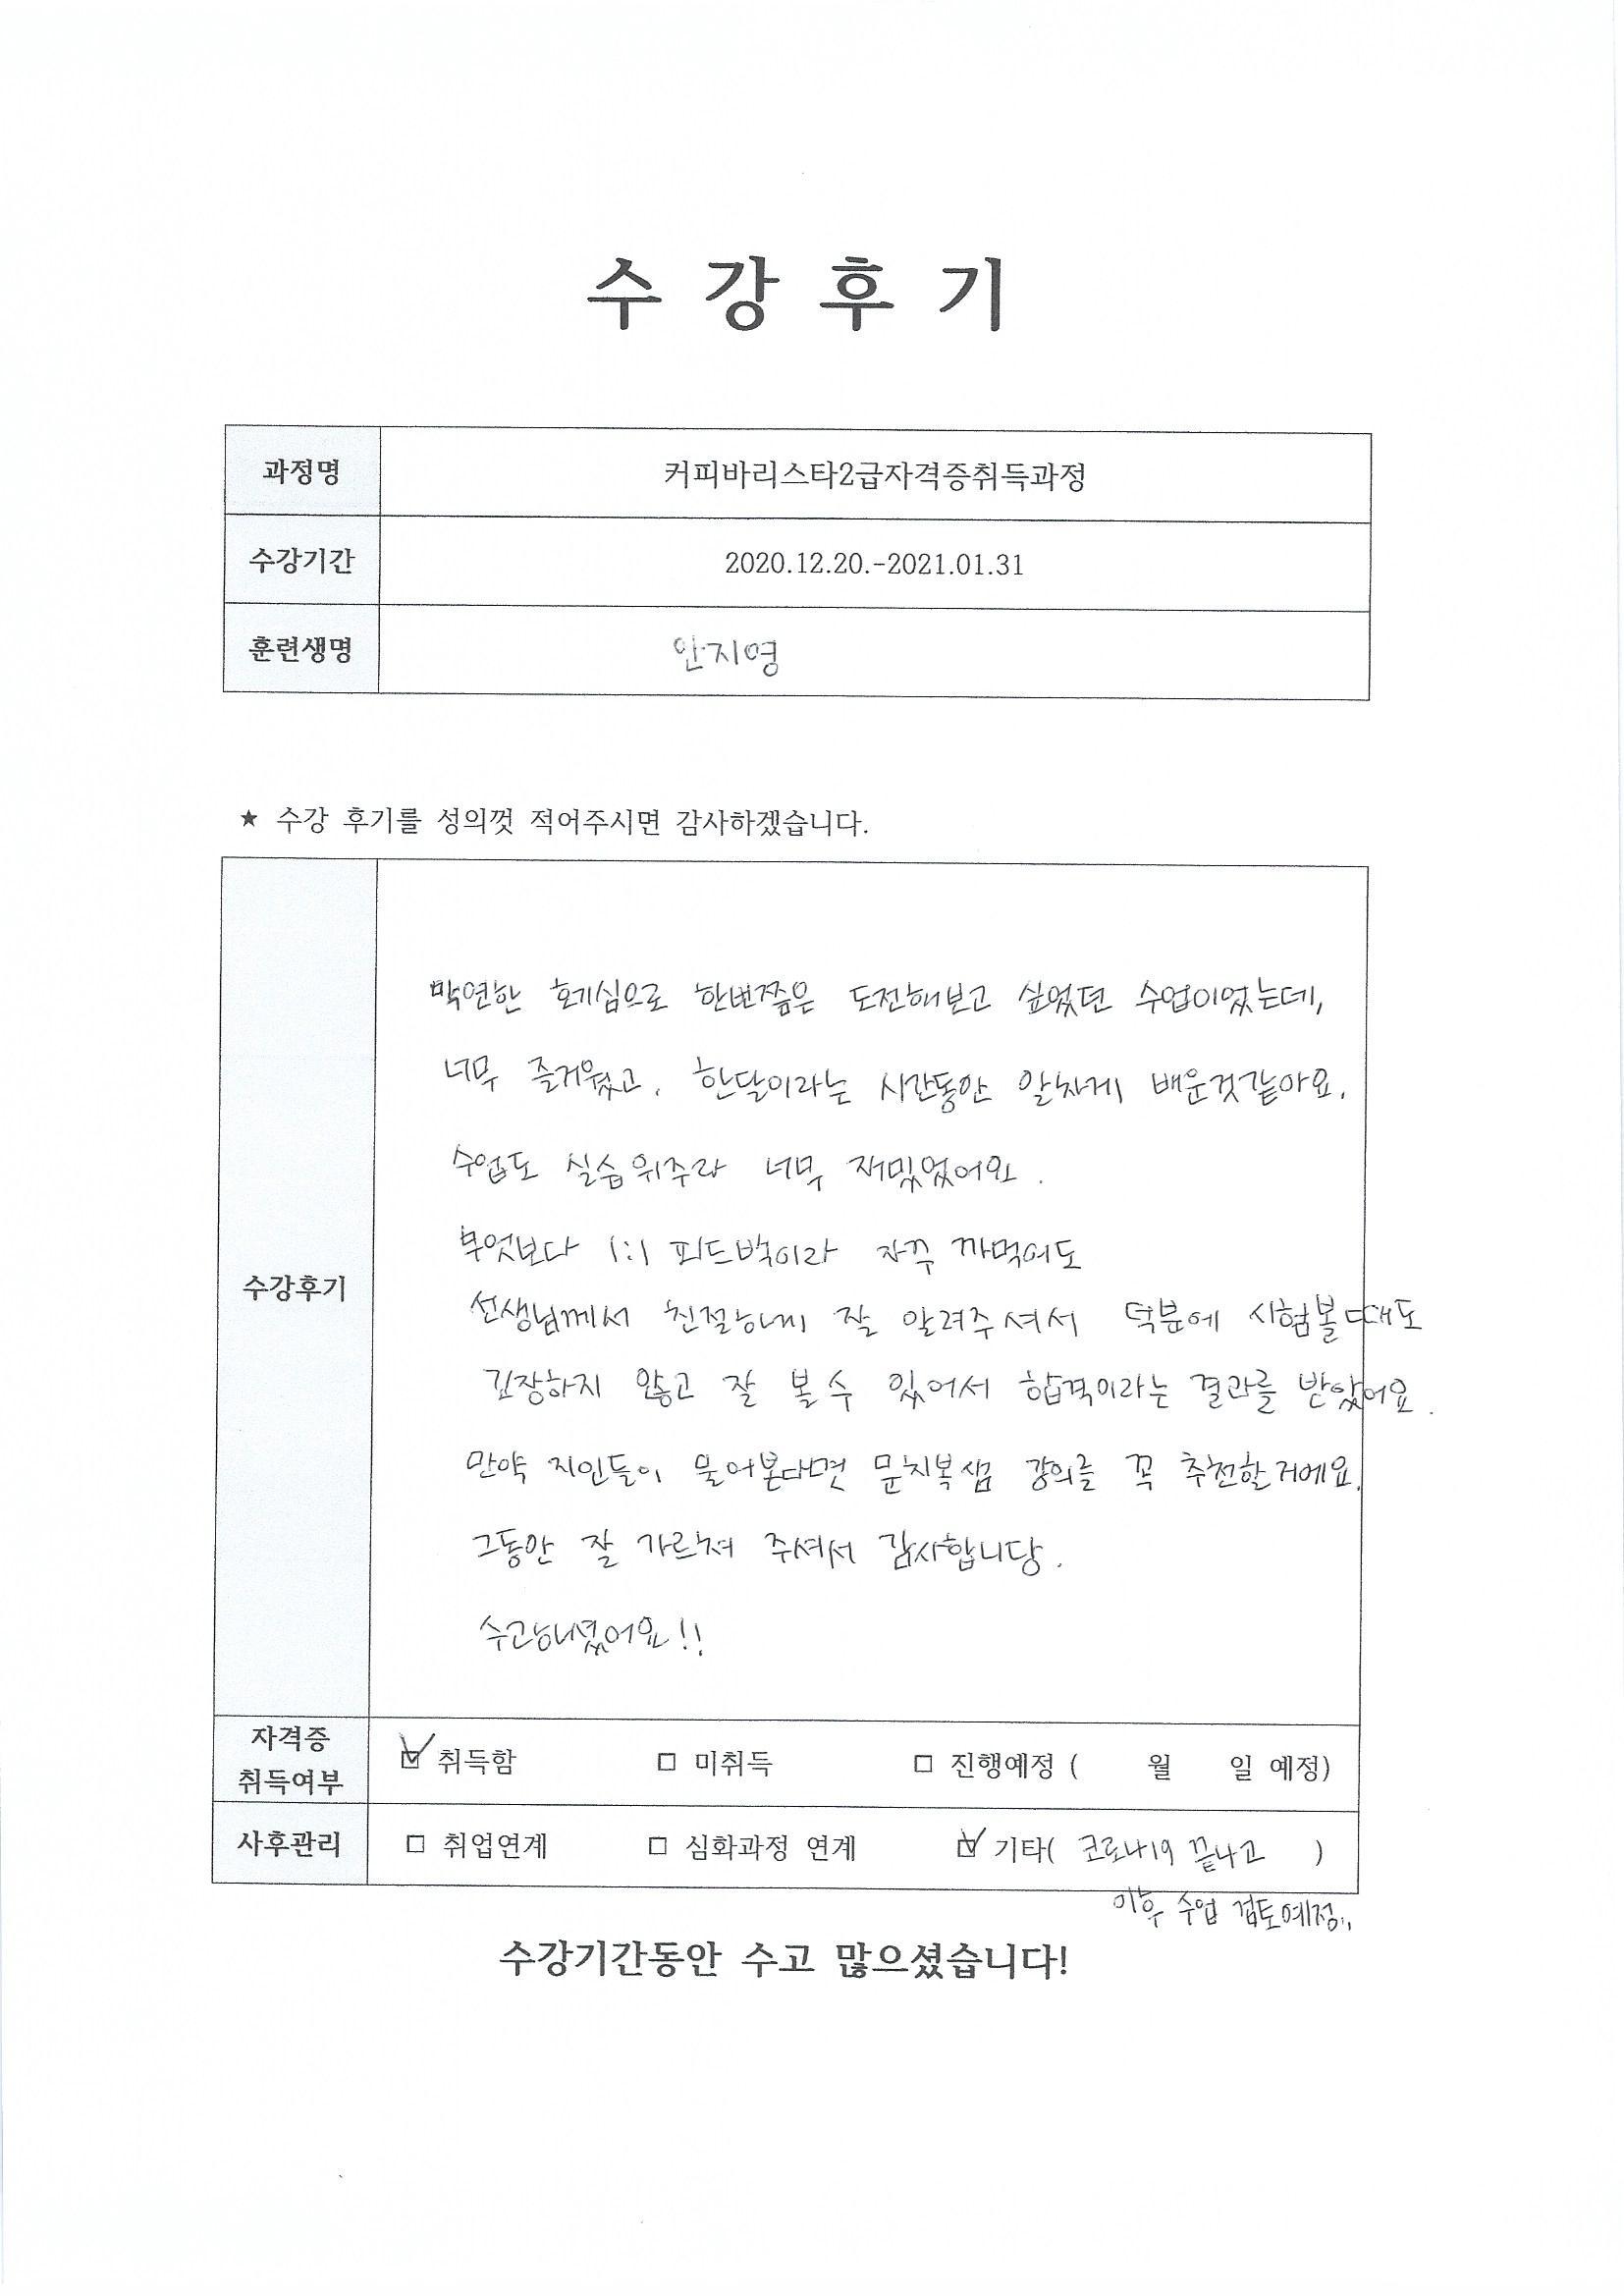 수 강 후 기
과정명 커피바리스타2급자격증취득과정
수강기간 2020.12.20.-2021.01.31
훈련생명 안지영
★ 수강 후기를 성의껏 적어주시면 감사하겠습니다.
수강후기
막연한 호기심으로 한번쯤은 도전해보고 싶었던 수업이었는데,
너무 즐거웠고, 한달이라는 시간동안 알차게 배운것같아요.
수업도 실습위주라 너무 재밌었어요.
무엇보다 1:1 피드백이라 자꾸 까먹어도
선생님께서 친절하게 잘 알려주셔서 덕분에 시험볼때도
긴장하지 않고 잘 볼 수 있어서 합격이라는 결과를 받았어요.
만약 지인들이 물어본다면 문지복쌤 강의를 꼭 추천할거에요.
그동안 잘 가르쳐 주셔서 감사합니당.
수고하셨어요!!
자격증
취득여부 ☑ 취득함 □ 미취득 □ 진행예정 ( 월 일 예정)
사후관리 □ 취업연계 □ 심화과정 연계 ☑ 기타( 코로나19 끝나고 )
이후 수업 검토예정..
수강기간동안 수고 많으셨습니다!